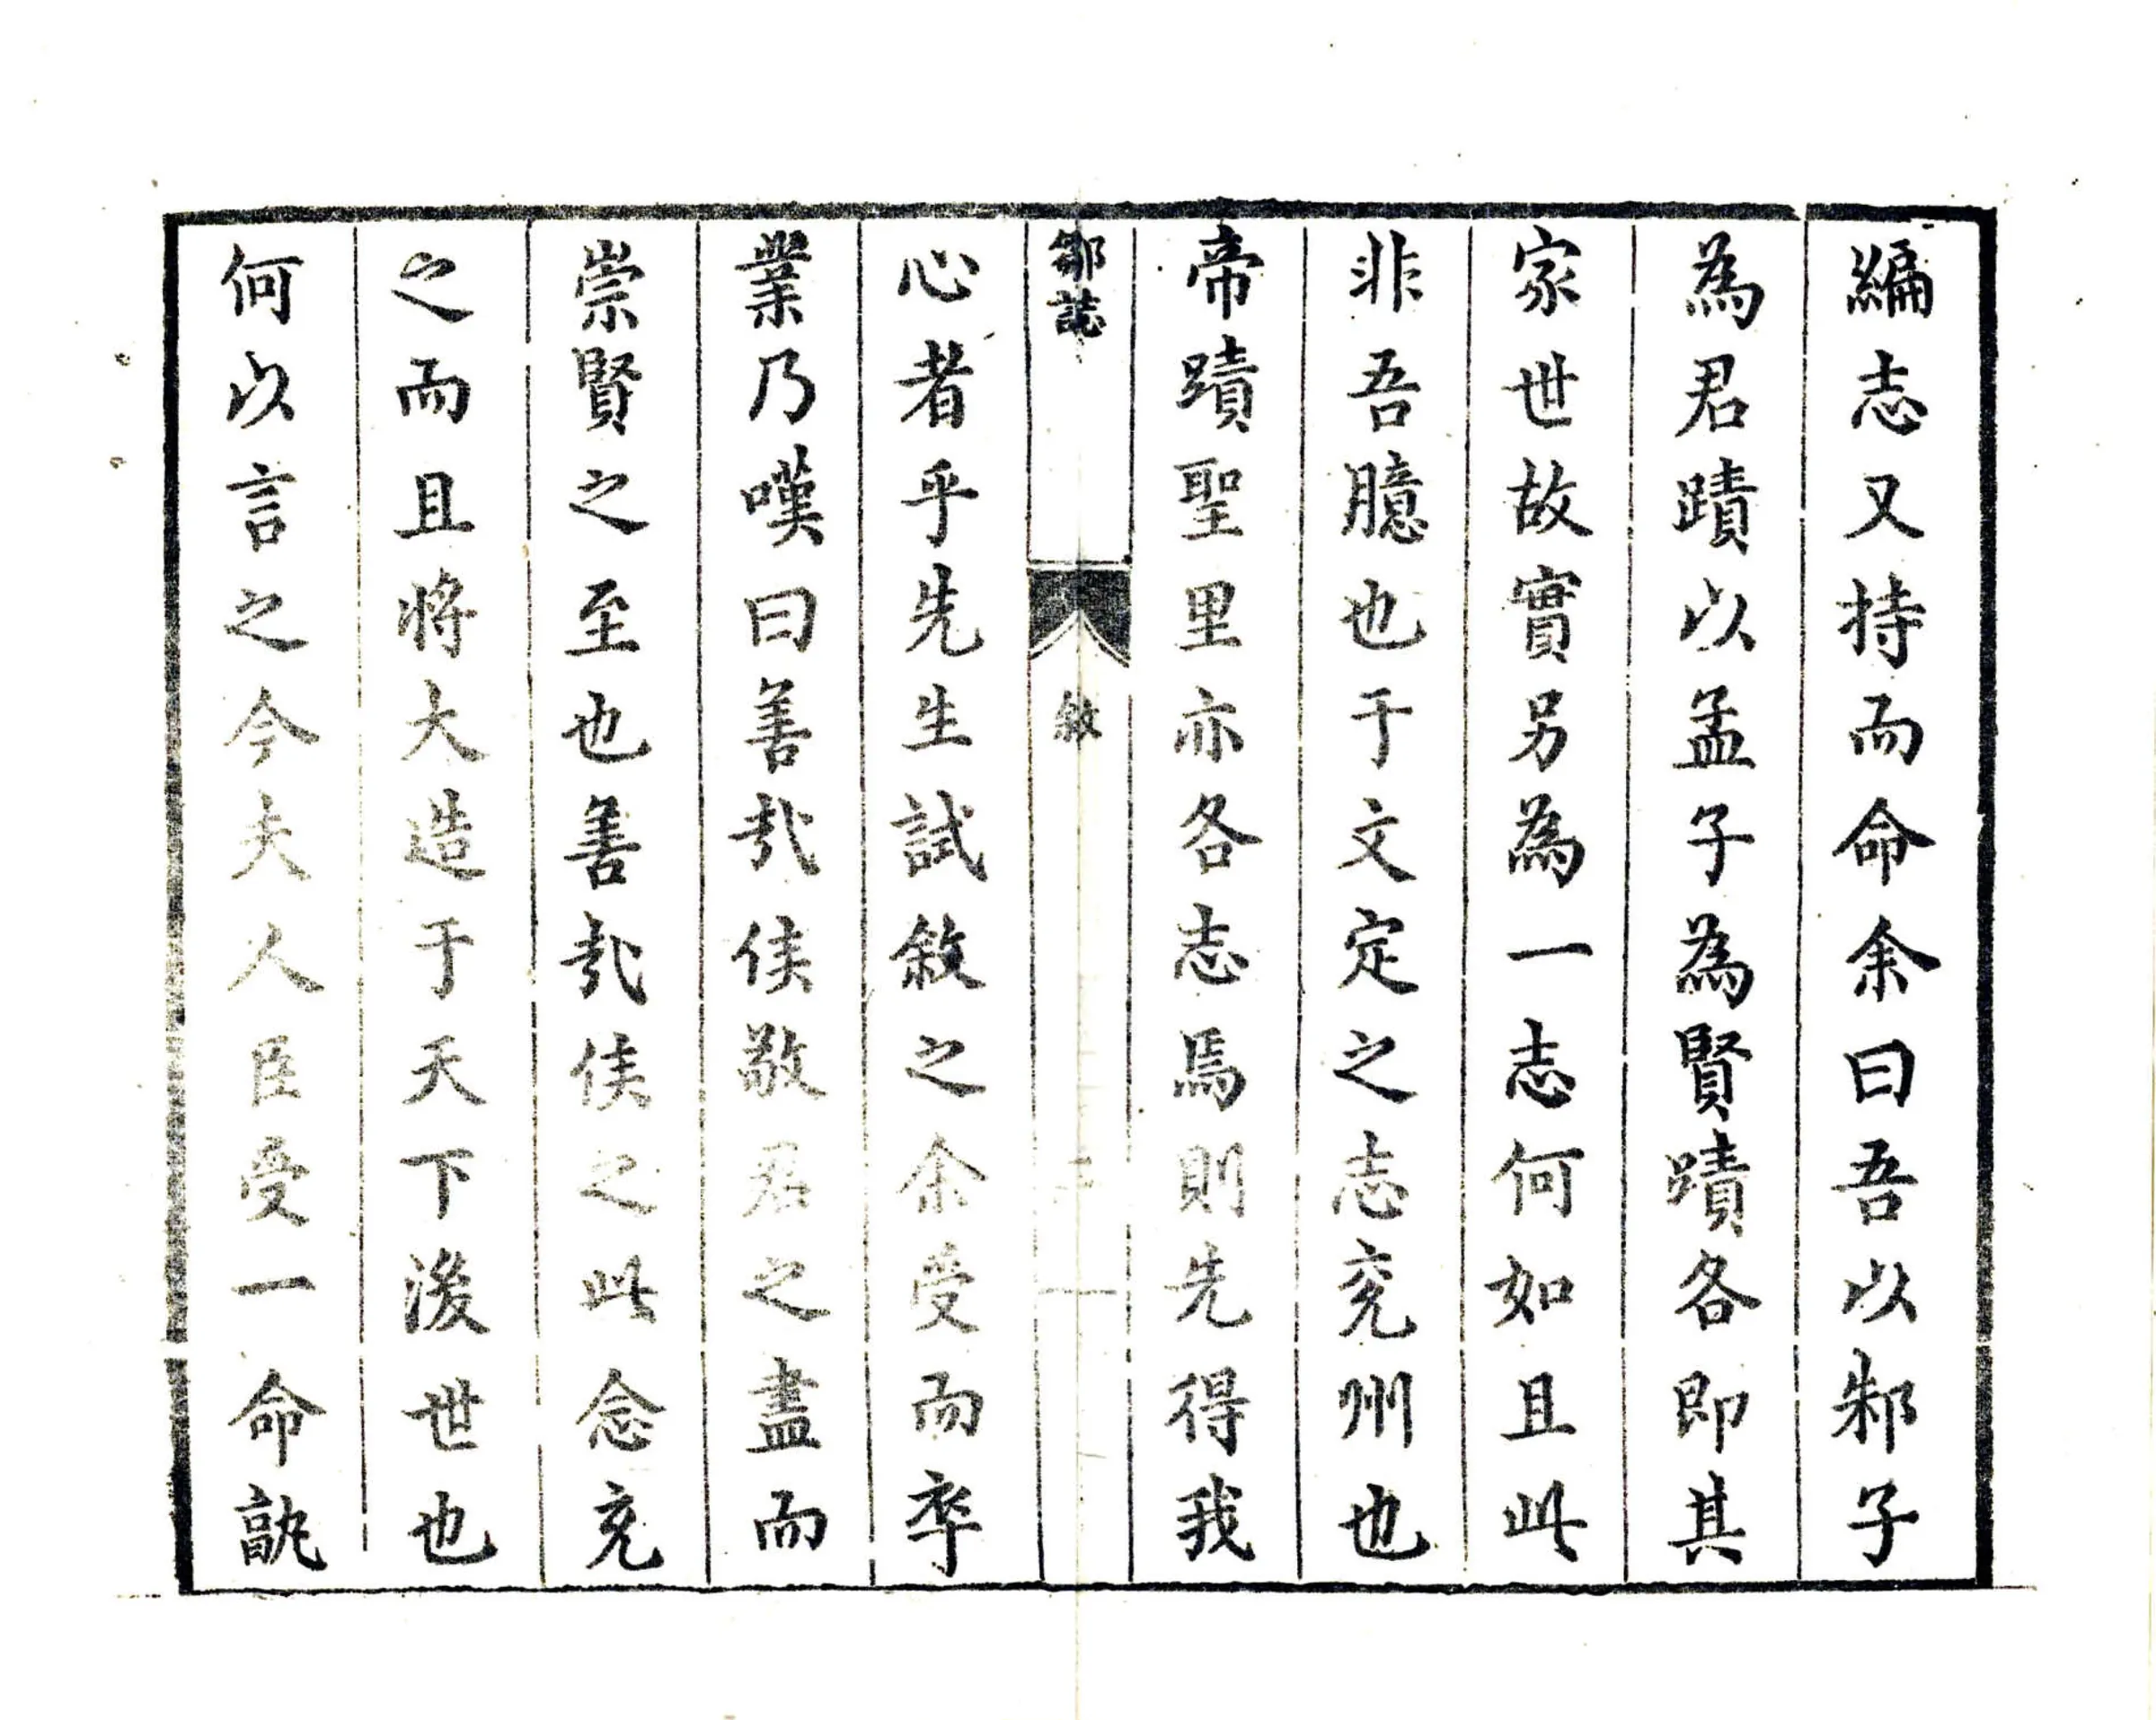 編志又持而命余曰吾以邾子
為君蹟以孟子為賢蹟各即其
家世故實另為一志何如且此
非吾臆也于文定之志兖州也
帝蹟聖里亦各志焉則先得我
鄒誌
敘
心者乎先生試敘之余受而卒
業乃嘆曰善哉侯敬君之盡而
崇賢之至也善哉侯之此念充
之而且將大造于天下後世也
何以言之今夫人臣受一命孰